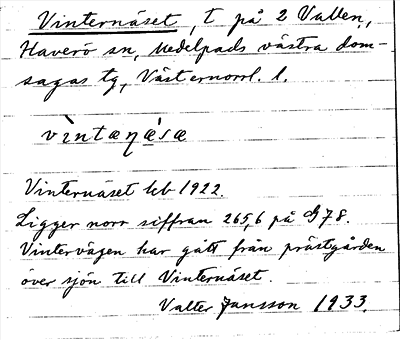 Vinternäset, t på 2 Vallen,
Haverö sn, Medelpads västra dom-
sagas tg, Västernorrl. l.
vìntæṇæ̀sæ
Vinternäset kb 1922.
Ligger norr siffran 265,6 på G 78.
Vintervägen har gått från prästgården
över sjön till Vinternäset.
Valter Jansson 1933.